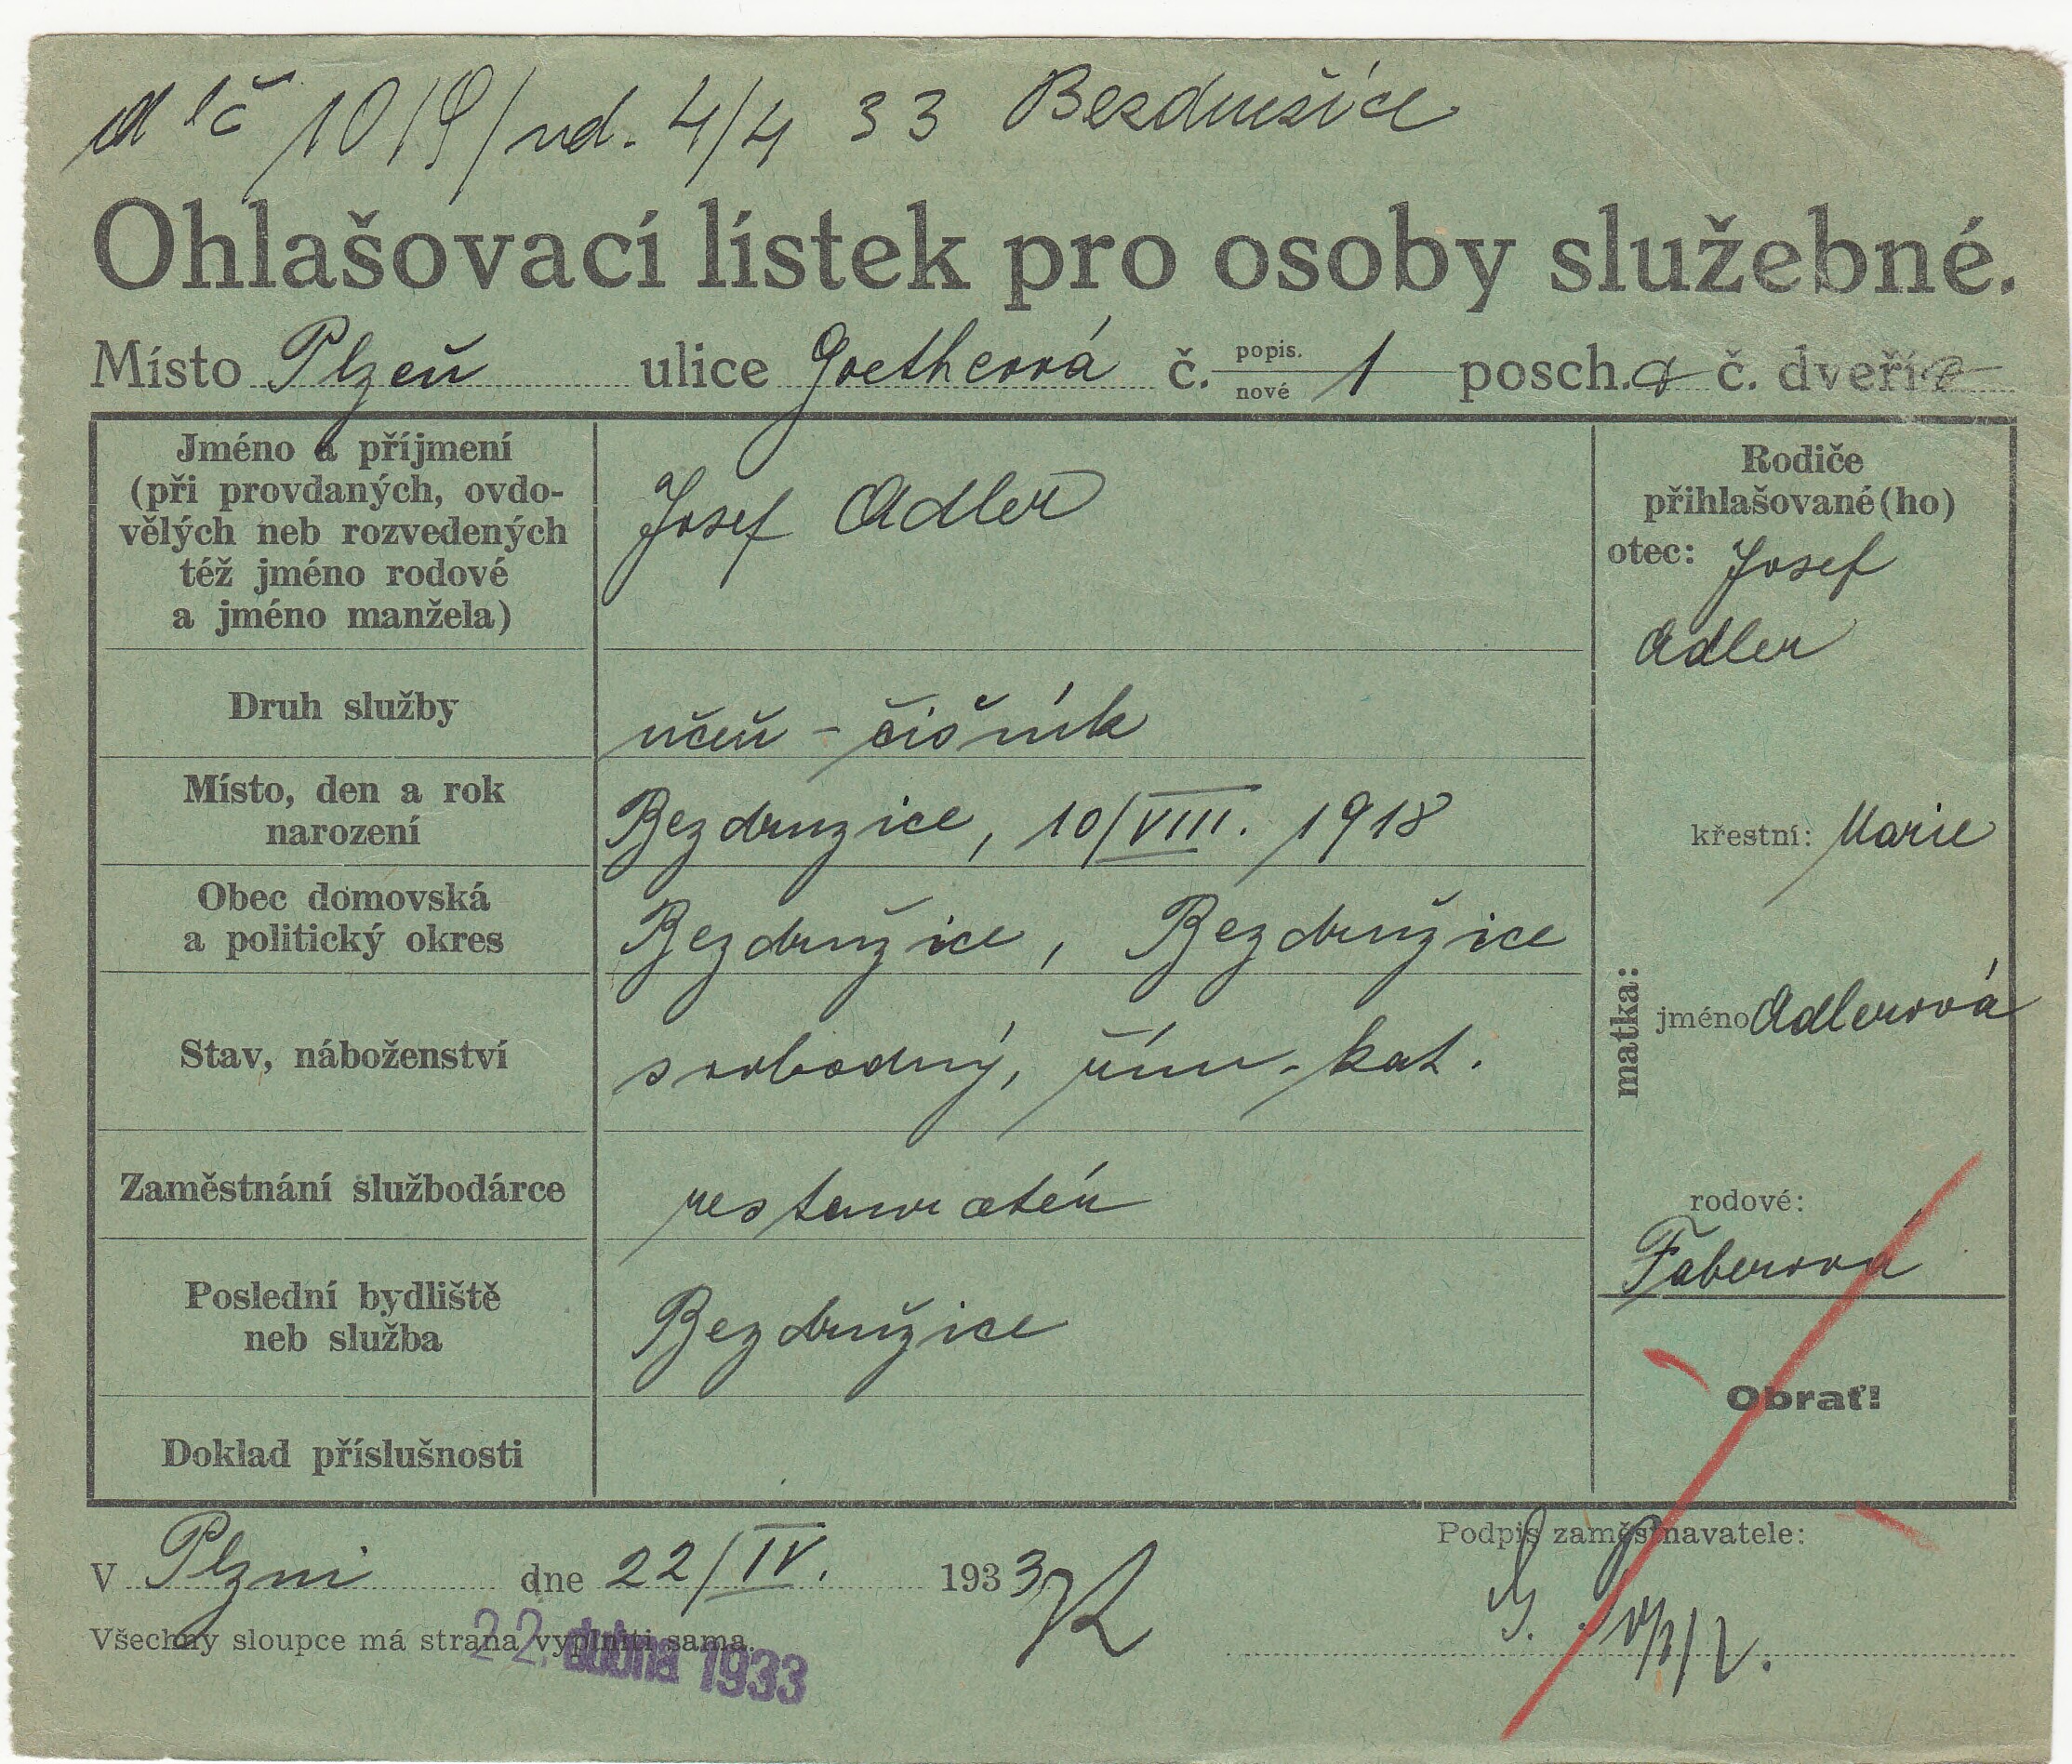 lč 10/9/vd. 4/4 33 Bezdružice
Ohlašovací lístek pro osoby služebné.
Místo Plzeň ulice Goetheová č. popis. nové 1 posch. č. dveří
Jméno a příjmení
(při provdaných, ovdo-
vělých neb rozvedených
též jméno rodové
a jméno manžela)
Josef Adler
Druh služby
učeň - číšník
Místo, den a rok
narození
Bezdruzice, 10/VIII. 1918
Obec domovská
a politický okres
Bezdružice, Bezdružice
Stav, náboženství
svobodný, řím.-kat.
Zaměstnání službodárce
restauratér
Poslední bydliště
neb služba
Bezdružice
Doklad příslušnosti
Rodiče
přihlašované(ho)
otec: Josef
Adler
matka:
křestní: Marie
jméno Adlerová
rodové:
Faberová
Obrať!
V Plzni dne 22/IV. 1933
Podpis zaměstnavatele:
Všechny sloupce má strana vyplniti sama.
22. dubna 1933